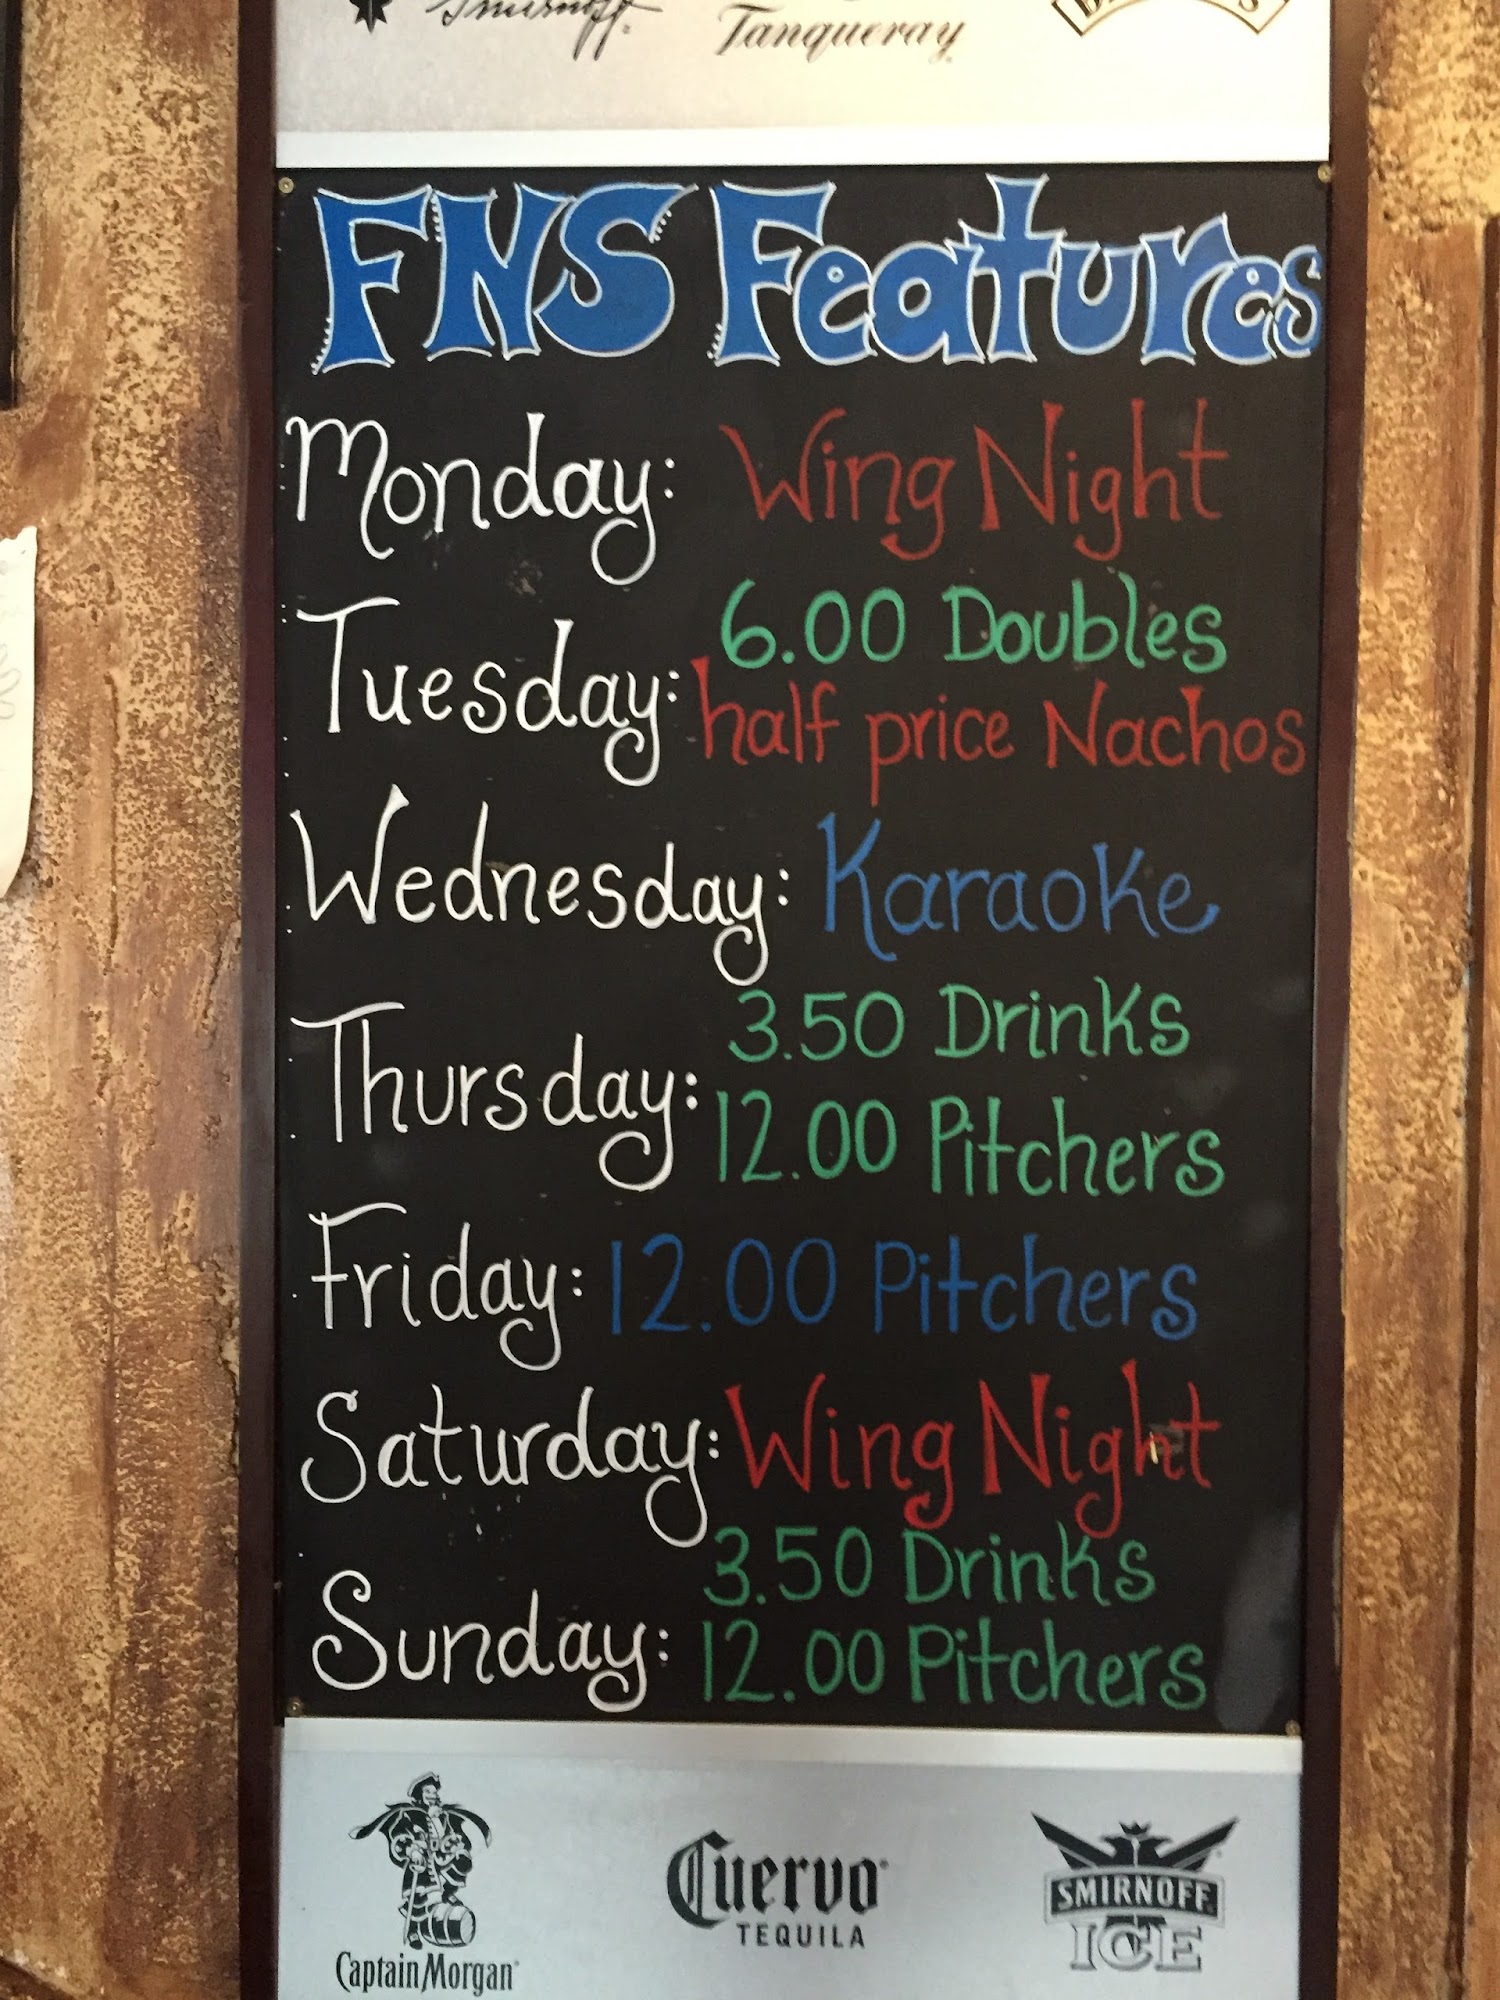 Smirnoff
Tanqueray
FNS Features
Monday: Wing Night
Tuesday: 6.00 Doubles
half price Nachos
Wednesday: Karaoke
Thursday: 3.50 Drinks
12.00 Pitchers
Friday: 12.00 Pitchers
Saturday: Wing Night
Sunday: 3.50 Drinks
12.00 Pitchers
Captain Morgan
Cuervo
TEQUILA
SMIRNOFF
ICE